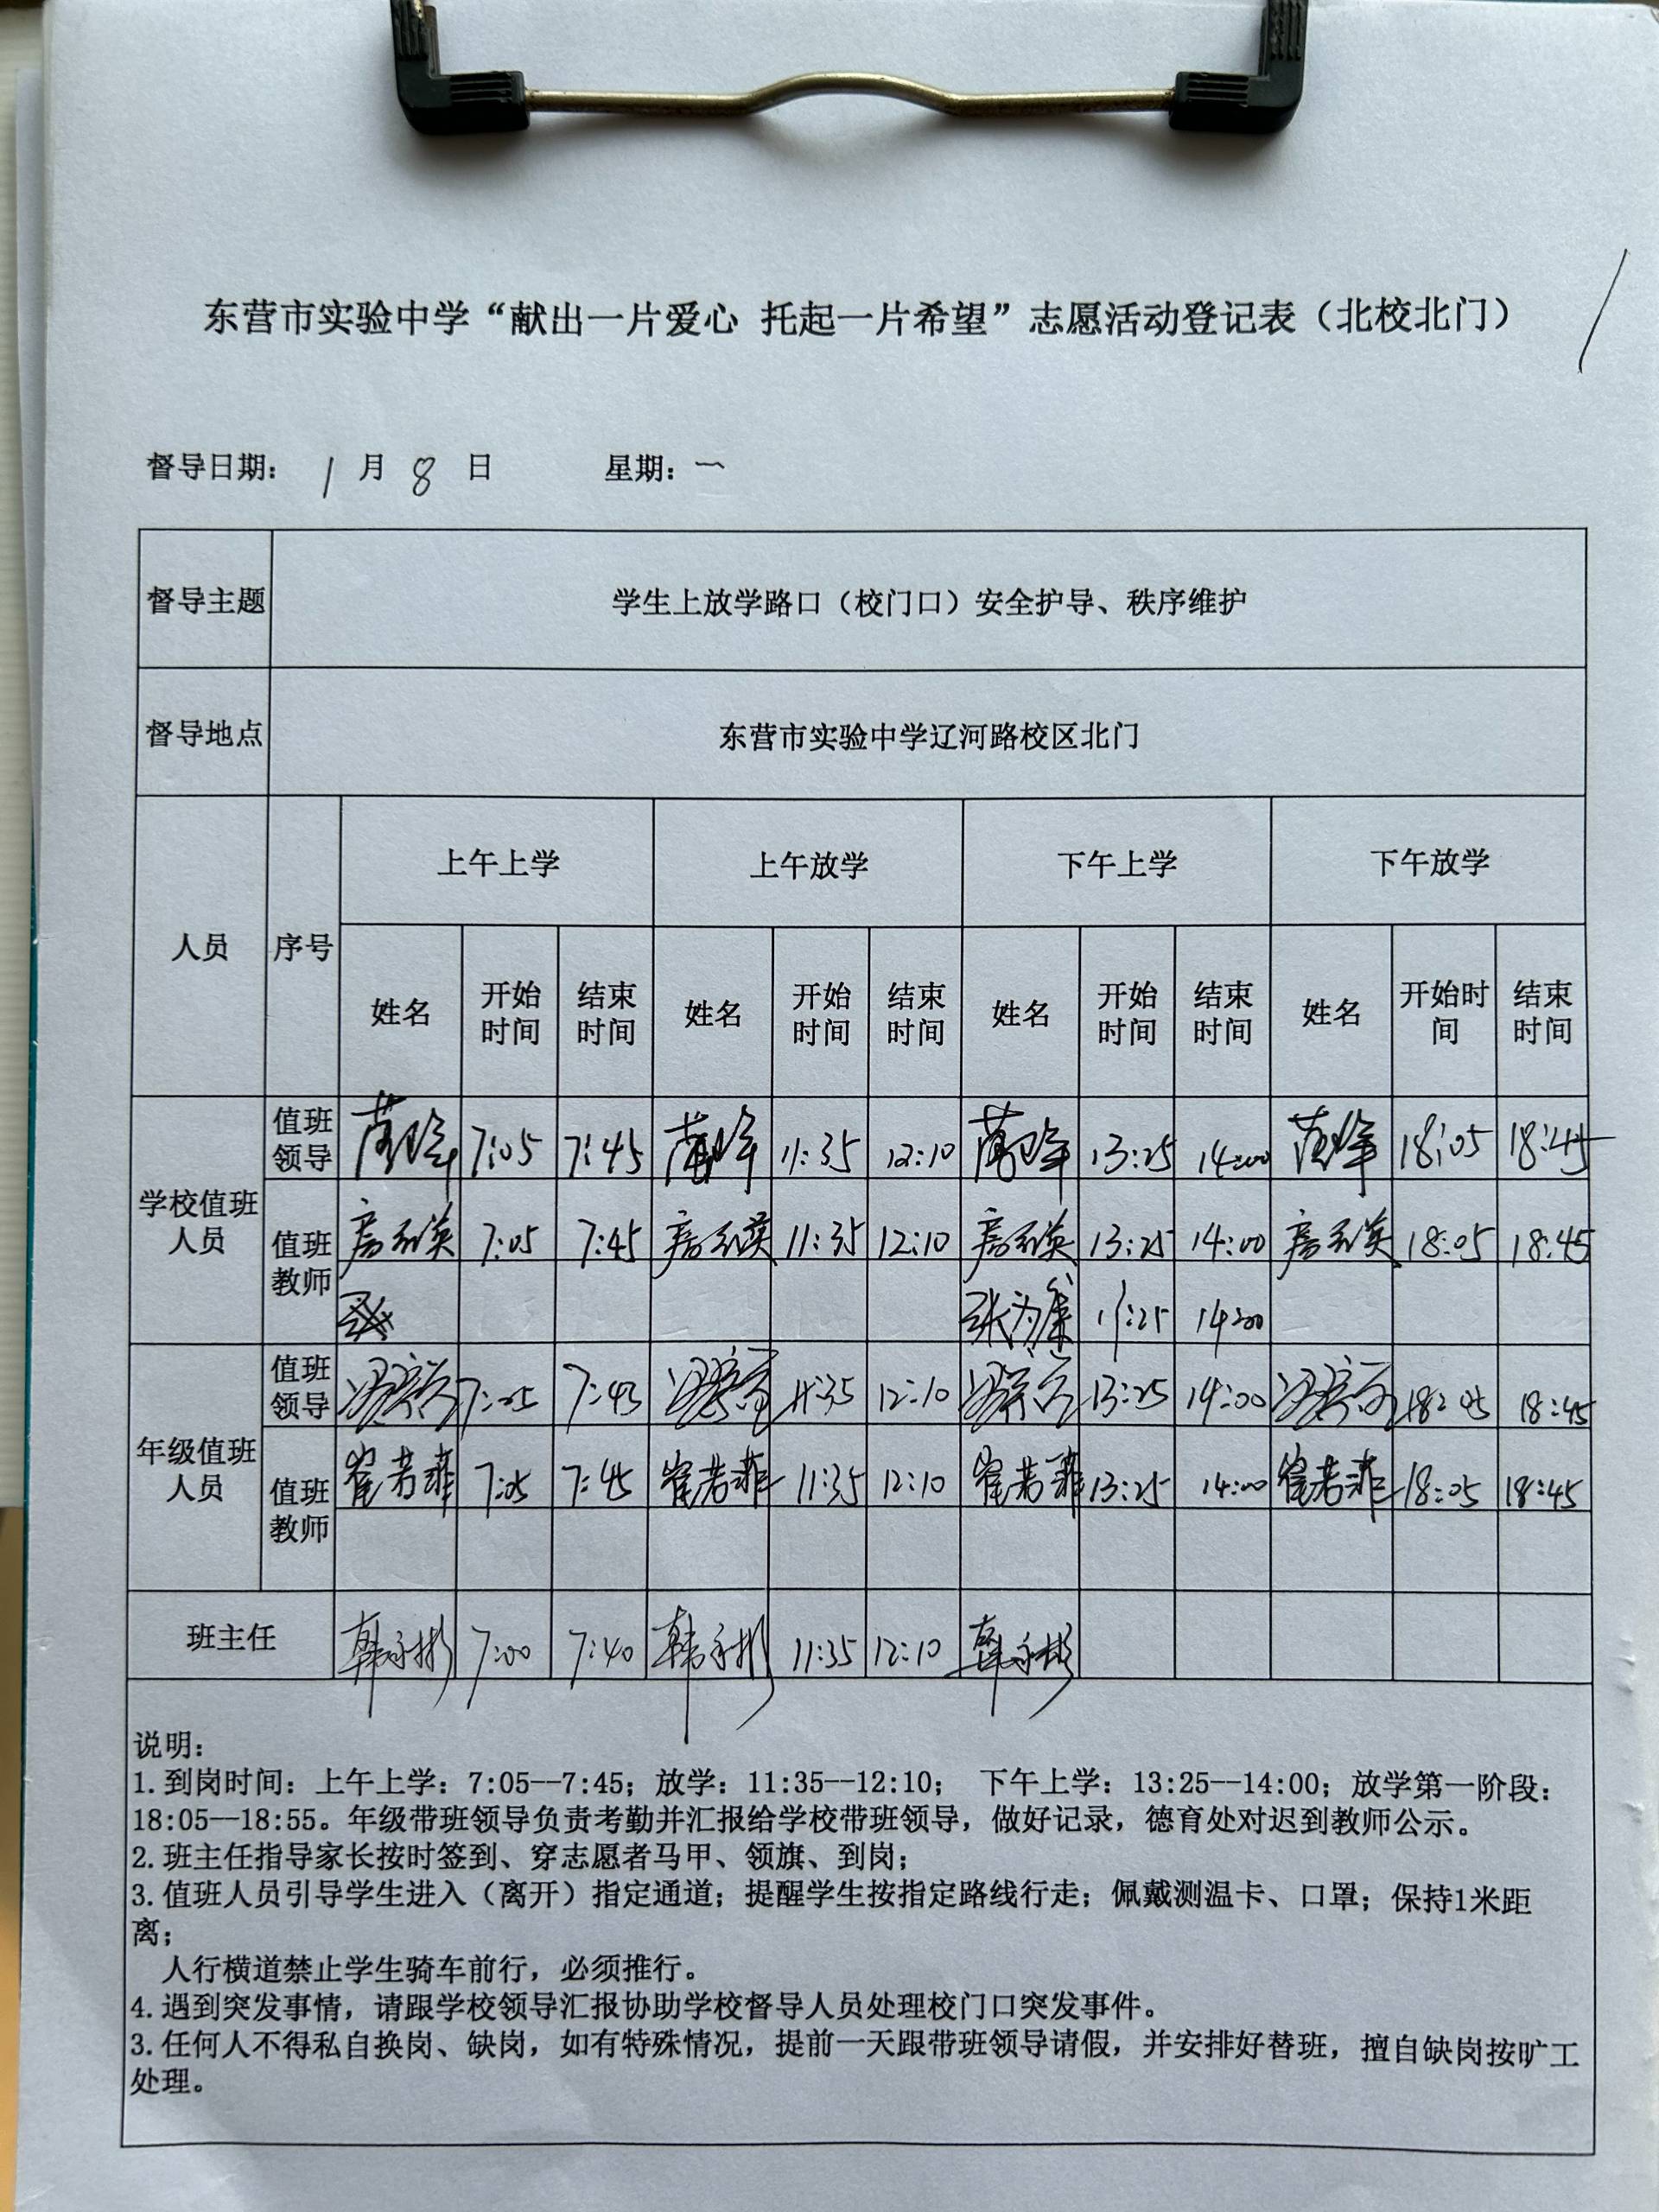 东营市实验中学“献出一片爱心 托起一片希望”志愿活动登记表（北校北门）
督导日期： 1 月 8 日 星期：一
督导主题 学生上放学路口（校门口）安全护导、秩序维护
督导地点 东营市实验中学辽河路校区北门
人员 序号 上午上学 上午放学 下午上学 下午放学
姓名 开始时间 结束时间 姓名 开始时间 结束时间 姓名 开始时间 结束时间 姓名 开始时间 结束时间
学校值班人员 值班领导 7:05 7:45 11:35 12:10 13:25 14:00 18:05 18:45
值班教师 7:05 7:45 11:35 12:10 13:25 14:00 18:05 18:45
14:00
年级值班人员 值班领导 7:05 7:45 11:35 12:10 13:25 14:00 18:05 18:45
值班教师 崔若菲 7:05 7:45 崔若菲 11:35 12:10 崔若菲 13:25 14:00 崔若菲 18:05 18:45
班主任 韩永彬 7:00 7:40 韩永彬 11:35 12:10 韩永彬
说明：
1.到岗时间：上午上学：7:05--7:45；放学：11:35--12:10； 下午上学：13:25--14:00；放学第一阶段：
18:05--18:55。年级带班领导负责考勤并汇报给学校带班领导，做好记录，德育处对迟到教师公示。
2.班主任指导家长按时签到、穿志愿者马甲、领旗、到岗；
3.值班人员引导学生进入（离开）指定通道；提醒学生按指定路线行走；佩戴测温卡、口罩；保持1米距
离；
人行横道禁止学生骑车前行，必须推行。
4.遇到突发事情，请跟学校领导汇报协助学校督导人员处理校门口突发事件。
3.任何人不得私自换岗、缺岗，如有特殊情况，提前一天跟带班领导请假，并安排好替班，擅自缺岗按旷工
处理。